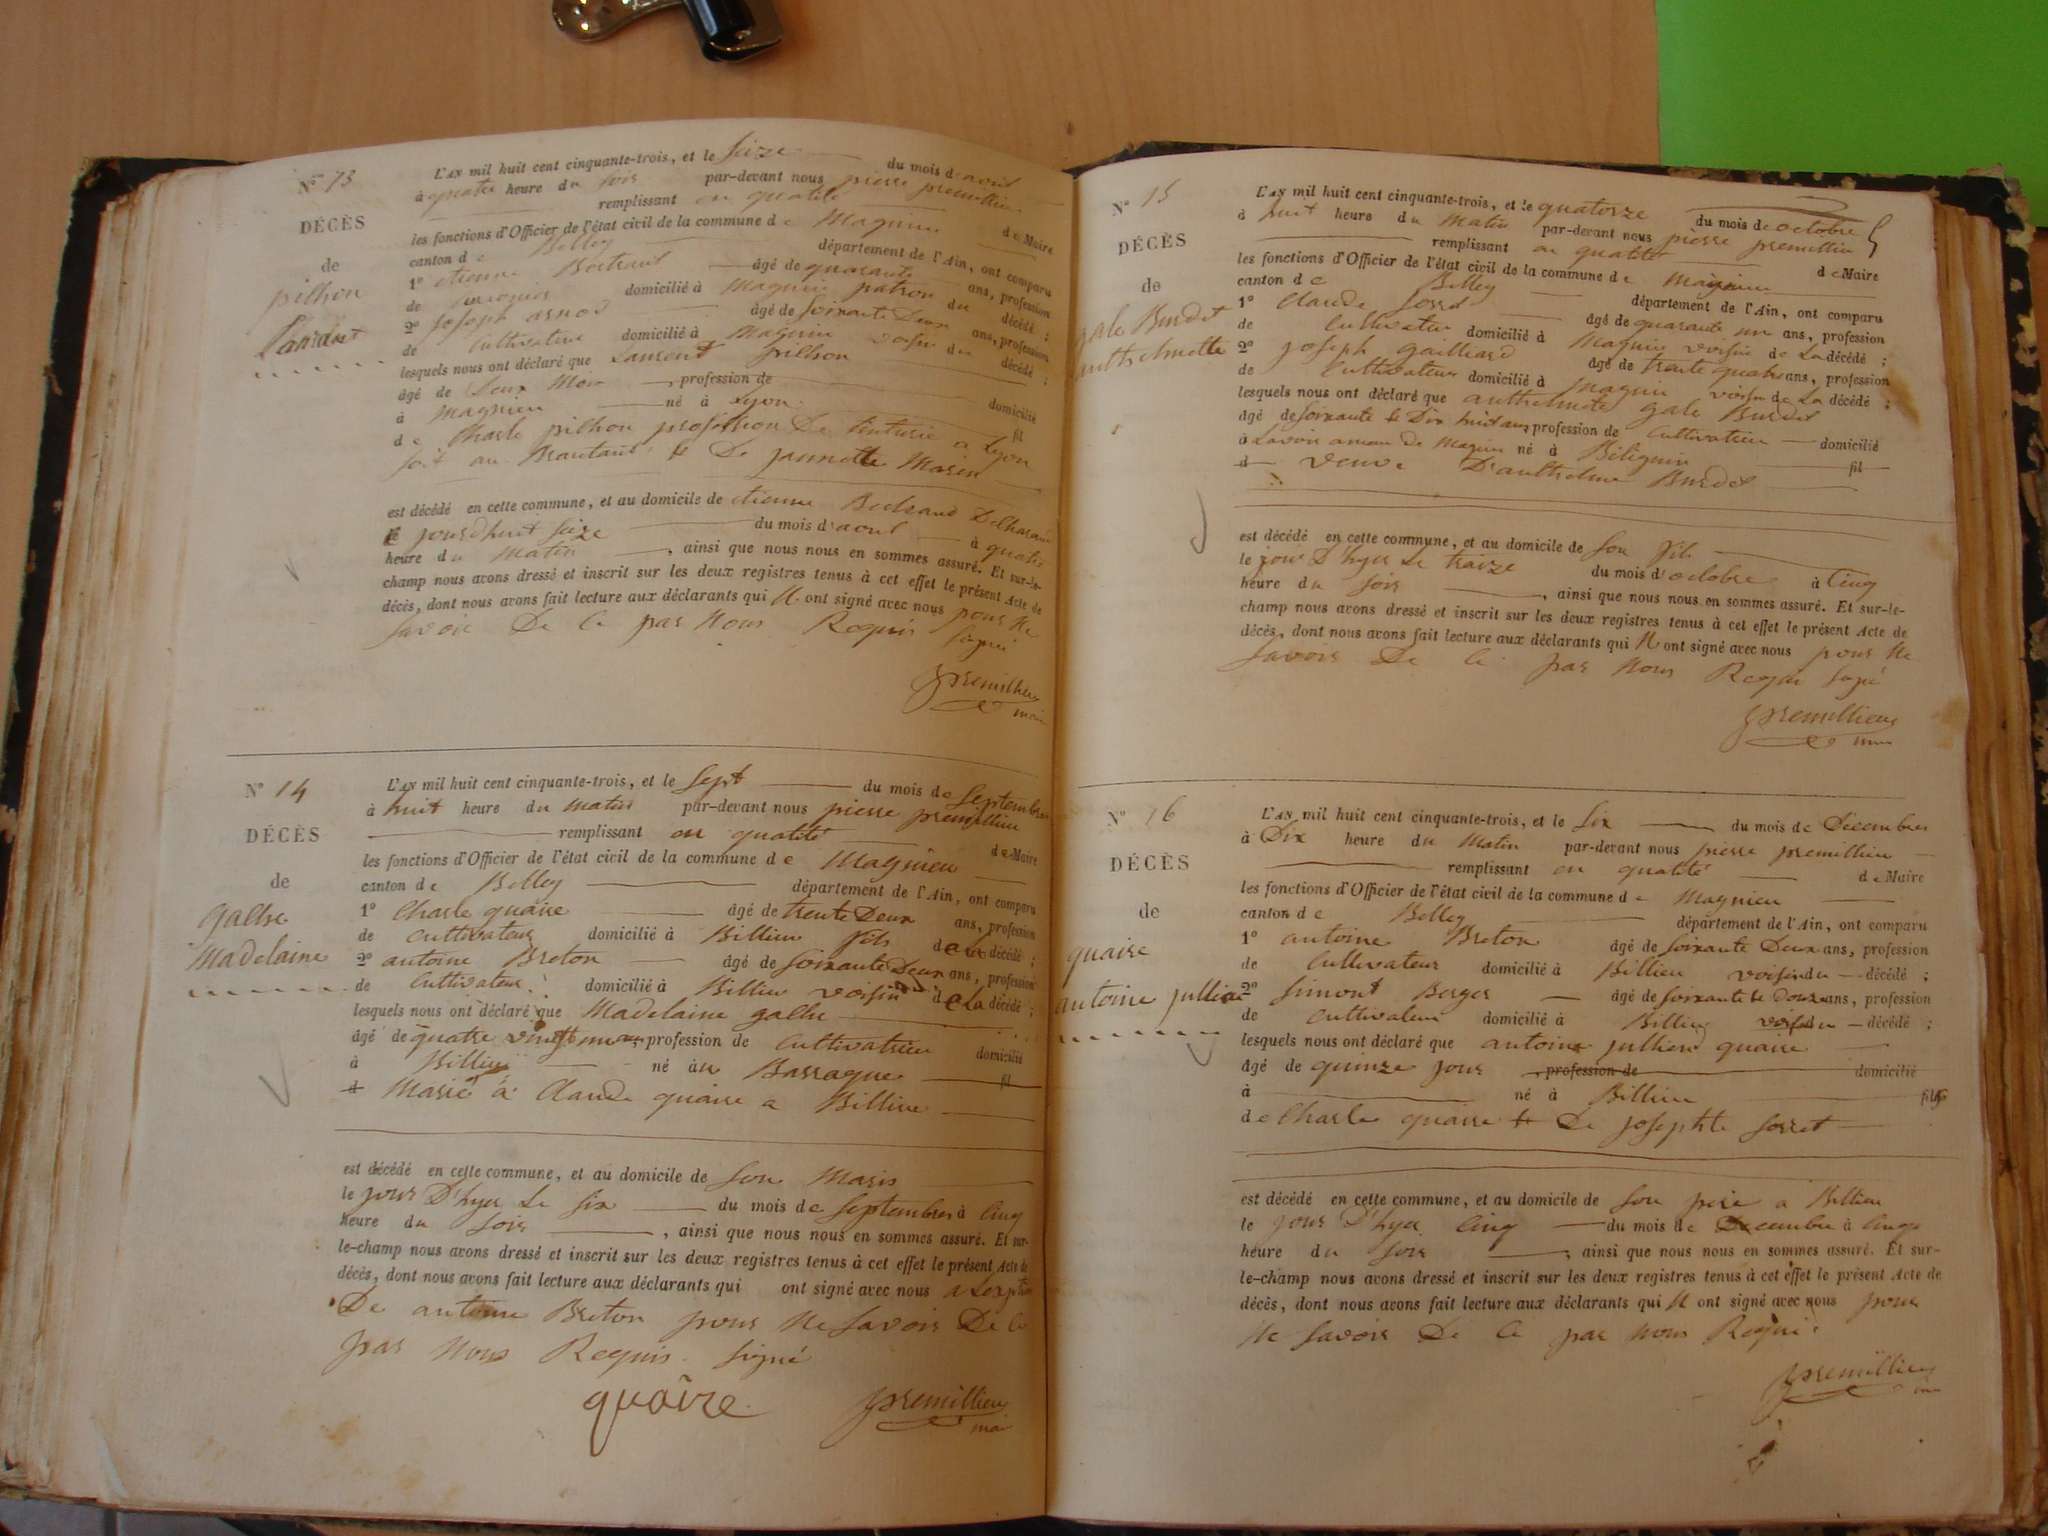 N° 13
DÉCÈS
de
pilhon
Laurent
L'AN mil huit cent cinquante-trois, et le Seize du mois d'
à quatre heure du soir par-devant nous pierre premillieu
remplissant en qualité de Maire
les fonctions d'Officier de l'état civil de la commune de Magnieu
canton de Belley département de l'Ain, ont comparu
1° etienne Bertrand âgé de quarante ans, profession
de domicilié à Magnieu patron du décédé ;
2° joseph arnod âgé de Soixante Deux ans, profession
de Cultivateur domicilié à Magnieu voisin du décédé ;
lesquels nous ont déclaré que Laurent pilhon
âgé de Deux Mois profession de domicilié
à Magnieu né à Lyon fil
de Charle pilhon profession De a Lyon
soit au et De jannette
est décédé en cette commune, et au domicile de etienne Bertrand
le jourdhuit seize du mois d' à quatre
heure du Matin, ainsi que nous nous en sommes assuré. Et sur-le-
champ nous avons dressé et inscrit sur les deux registres tenus à cet effet le présent Acte de
décès, dont nous avons fait lecture aux déclarants qui N ont signé avec nous pour Ne
Savoir De Ce par Nous Requis
signé
premillieu
maire
N° 14
DÉCÈS
de
galhe
Madelaine
L'AN mil huit cent cinquante-trois, et le Sept du mois de Septembre
à huit heure du matin par-devant nous pierre premillieu
remplissant en qualité de Maire
les fonctions d'Officier de l'état civil de la commune de Magnieu
canton de Belley département de l'Ain, ont comparu
1° Charle quaire âgé de trente Deux ans, profession
de Cultivateur domicilié à Billieu fils de La décédé ;
2° antoine Breton âgé de Soixante Deux ans, profession
de Cultivateur domicilié à Billieu voisin de La décédé ;
lesquels nous ont déclaré que Madelaine galhe
âgé de quatre vingt un ans, profession de Cultivatrice domicilié
à Billieu né au Barraque fil
d Marié à Claude quaire a Billieu
est décédé en cette commune, et au domicile de Son Maris
le jour D'hyer Le six du mois de Septembre à Cinq
heure du Soir, ainsi que nous nous en sommes assuré. Et sur-
le-champ nous avons dressé et inscrit sur les deux registres tenus à cet effet le présent Acte de
décès, dont nous avons fait lecture aux déclarants qui ont signé avec nous
De antoine Breton pour Ne Savoir De Ce
par Nous Requis. signé
quaire premillieu
maire
N° 15
DÉCÈS
de
gale Burdet
anthelmette
L'AN mil huit cent cinquante-trois, et le quatorze du mois de octobre
à huit heure du Matin par-devant nous pierre premillieu
remplissant en qualité de Maire
les fonctions d'Officier de l'état civil de la commune de Magnieu
canton de Belley département de l'Ain, ont comparu
1° Claude Sorret âgé de quarante un ans, profession
de Cultivateur domicilié à Magnieu voisin de La décédé ;
2° joseph gailliard âgé de trente quatre ans, profession
de Cultivateur domicilié à Magnieu voisin de La décédé ;
lesquels nous ont déclaré que anthelmette gale Burdet
âgé de Soixante et Dix huit ans profession de Cultivatrice domicilié
à Lavoir ameau de Magnieu né à fil
d veuve D'anthelme Burdet
est décédé en cette commune, et au domicile de Son fils
le jour D'hyer Le treize du mois d'octobre à Cinq
heure du Soir, ainsi que nous nous en sommes assuré. Et sur-le-
champ nous avons dressé et inscrit sur les deux registres tenus à cet effet le présent Acte de
décès, dont nous avons fait lecture aux déclarants qui N ont signé avec nous pour Ne
Savoir De Ce par Nous Requis Signé
premillieu
maire
N° 16
DÉCÈS
de
quaire
antoine jullien
L'AN mil huit cent cinquante-trois, et le Six du mois de Décembre
à Dix heure du Matin par-devant nous pierre premillieu
remplissant en qualité de Maire
les fonctions d'Officier de l'état civil de la commune de Magnieu
canton de Belley département de l'Ain, ont comparu
1° antoine Breton âgé de Soixante Deux ans, profession
de Cultivateur domicilié à Billieu voisin du décédé ;
2° Simont Berger âgé de Soixante et Douze ans, profession
de Cultivateur domicilié à Billieu voisin du décédé ;
lesquels nous ont déclaré que antoine jullien quaire
âgé de quinze jour, profession de domicilié
à né à Billieu fils
de Charle quaire et De josephte Sorret
est décédé en cette commune, et au domicile de Son père a Billieu
le jour D'hyer Cinq du mois de Decembre à Cinq
heure du Soir, ainsi que nous nous en sommes assuré. Et sur-
le-champ nous avons dressé et inscrit sur les deux registres tenus à cet effet le présent Acte de
décès, dont nous avons fait lecture aux déclarants qui N ont signé avec nous pour
Ne Savoir De Ce par Nous Requi
premillieu